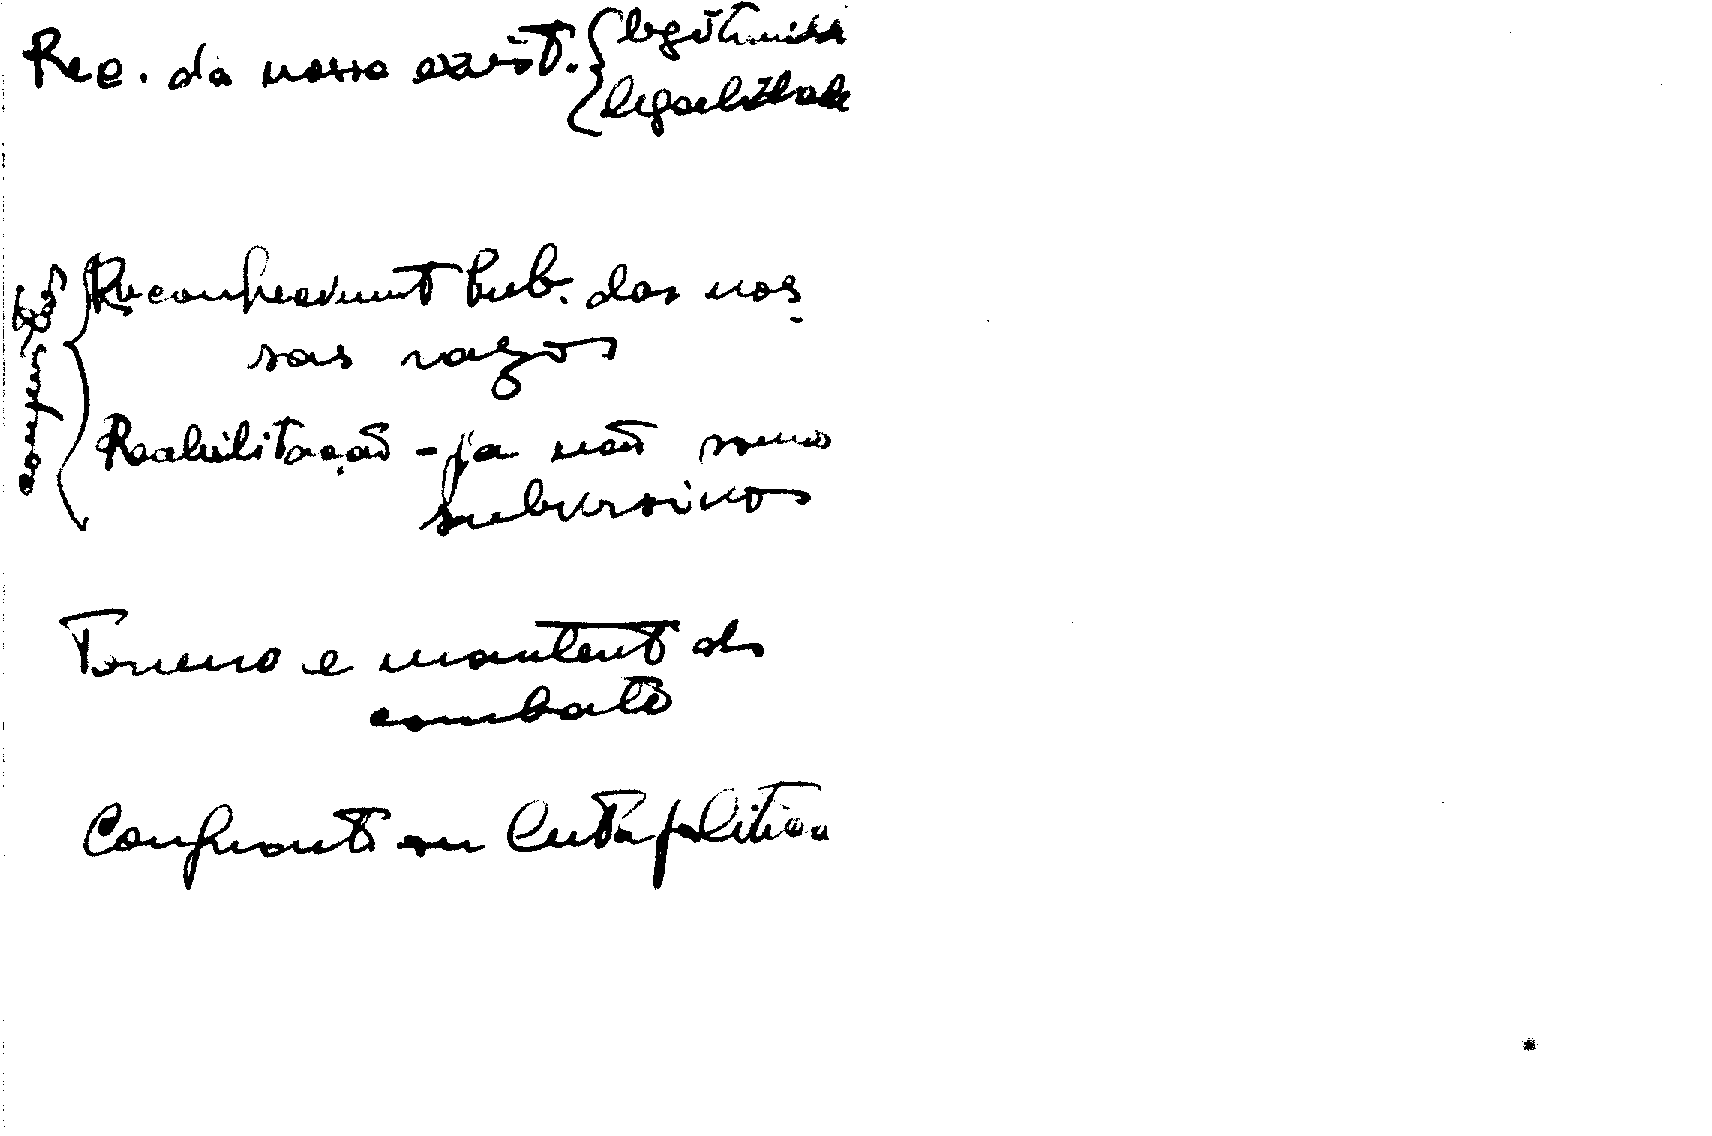 Rec. da nossa exist. { legitimida
legalidade
Reconheciment Pub. das nos
sas razos
Reabilitação - ja não somo
subversivos
Terreno e mantent do
combate
Confront em luta politica